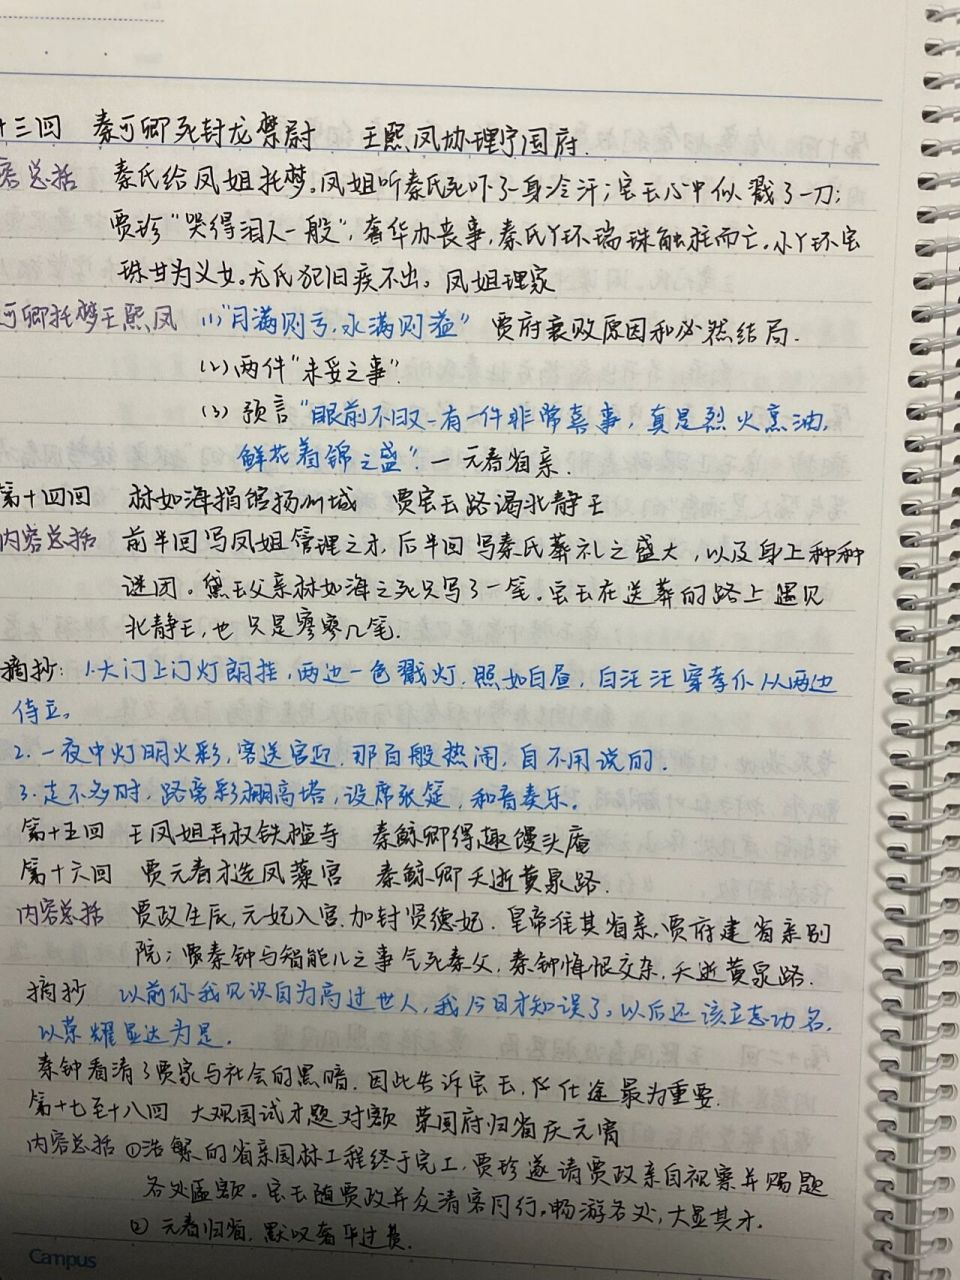 十三回 秦可卿死封龙禁尉 王熙凤协理宁国府.
容总括 秦氏给凤姐托梦。凤姐听秦氏死吓了一身冷汗;宝玉心中似戳了一刀;
贾珍“哭得泪人一般”,奢华办丧事,秦氏丫环瑞珠触柱而亡.小丫环宝
珠甘为义女。尤氏犯旧疾不出。凤姐理家
可卿托梦王熙凤 (1)“月满则亏,水满则溢” 贾府衰败原因和必然结局.
(2)两件“未妥之事”.
(3) 预言“眼前不日又有一件非常喜事,真是烈火烹油,
鲜花着锦之盛”.—元春省亲.
第十四回 林如海捐馆扬州城 贾宝玉路谒北静王
内容总括 前半回写凤姐管理之才,后半回写秦氏葬礼之盛大,以及身上种种
谜团。黛玉父亲林如海之死只写了一笔.宝玉在送葬的路上遇见
北静王,也只是寥寥几笔.
摘抄: 1.大门上门灯朗挂,两边一色戳灯.照如白昼,白汪汪穿孝仆从两边
侍立。
2.一夜中灯明火彩,客送官迎.那百般热闹,自不用说的.
3.走不多时,路旁彩棚高搭,设席张筵,和音奏乐。
第十五回 王凤姐弄权铁槛寺 秦鲸卿得趣馒头庵
第十六回 贾元春才选凤藻宫 秦鲸卿夭逝黄泉路.
内容总括 贾政生辰,元妃入宫.加封贤德妃.皇帝准其省亲,贾府建省亲别
院;秦钟与智能儿之事气死秦父,秦钟悔恨交杂,夭逝黄泉路.
摘抄 以前你我见识自为高过世人,我今日才知误了。以后还该立志功名,
以荣耀显达为是.
秦钟看清了贾家与社会的黑暗.因此告诉宝玉,仕途最为重要.
第十七至十八回 大观园试才题对额 荣国府归省庆元宵
内容总括 ①浩繁的省亲园林工程终于完工,贾珍遂请贾政亲自视察并赐题
各处匾额.宝玉随贾政并众清客同行,畅游各处,大显其才.
② 元春归省.默叹奢华过费.
Campus